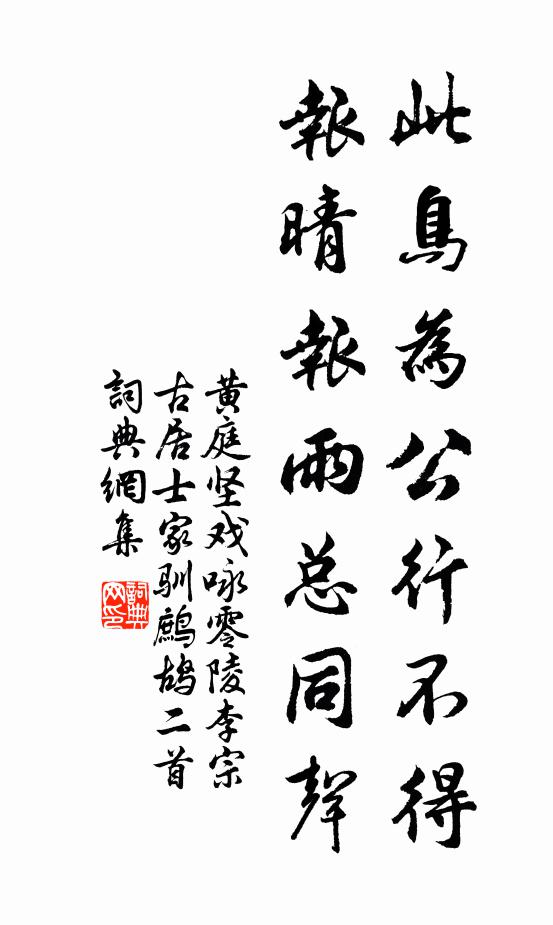 此鳥為公行不得
報晴報雨总同聲
黄庭坚戏咏零陵李宗
古居士家驯鹧鸪二首
詞典網集
詞典
网印